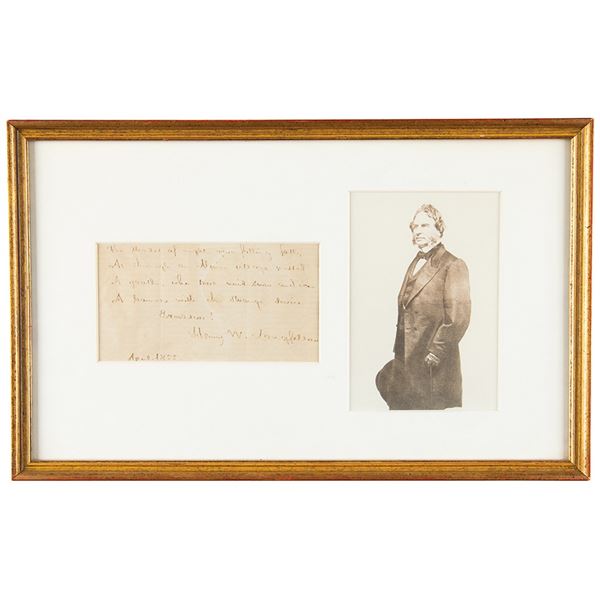 The shades of night were falling fast,
As through an Alpine village passed
A youth, who bore mid snow and ice
A banner with the strange device
Excelsior!
Henry W. Longfellow
1855.